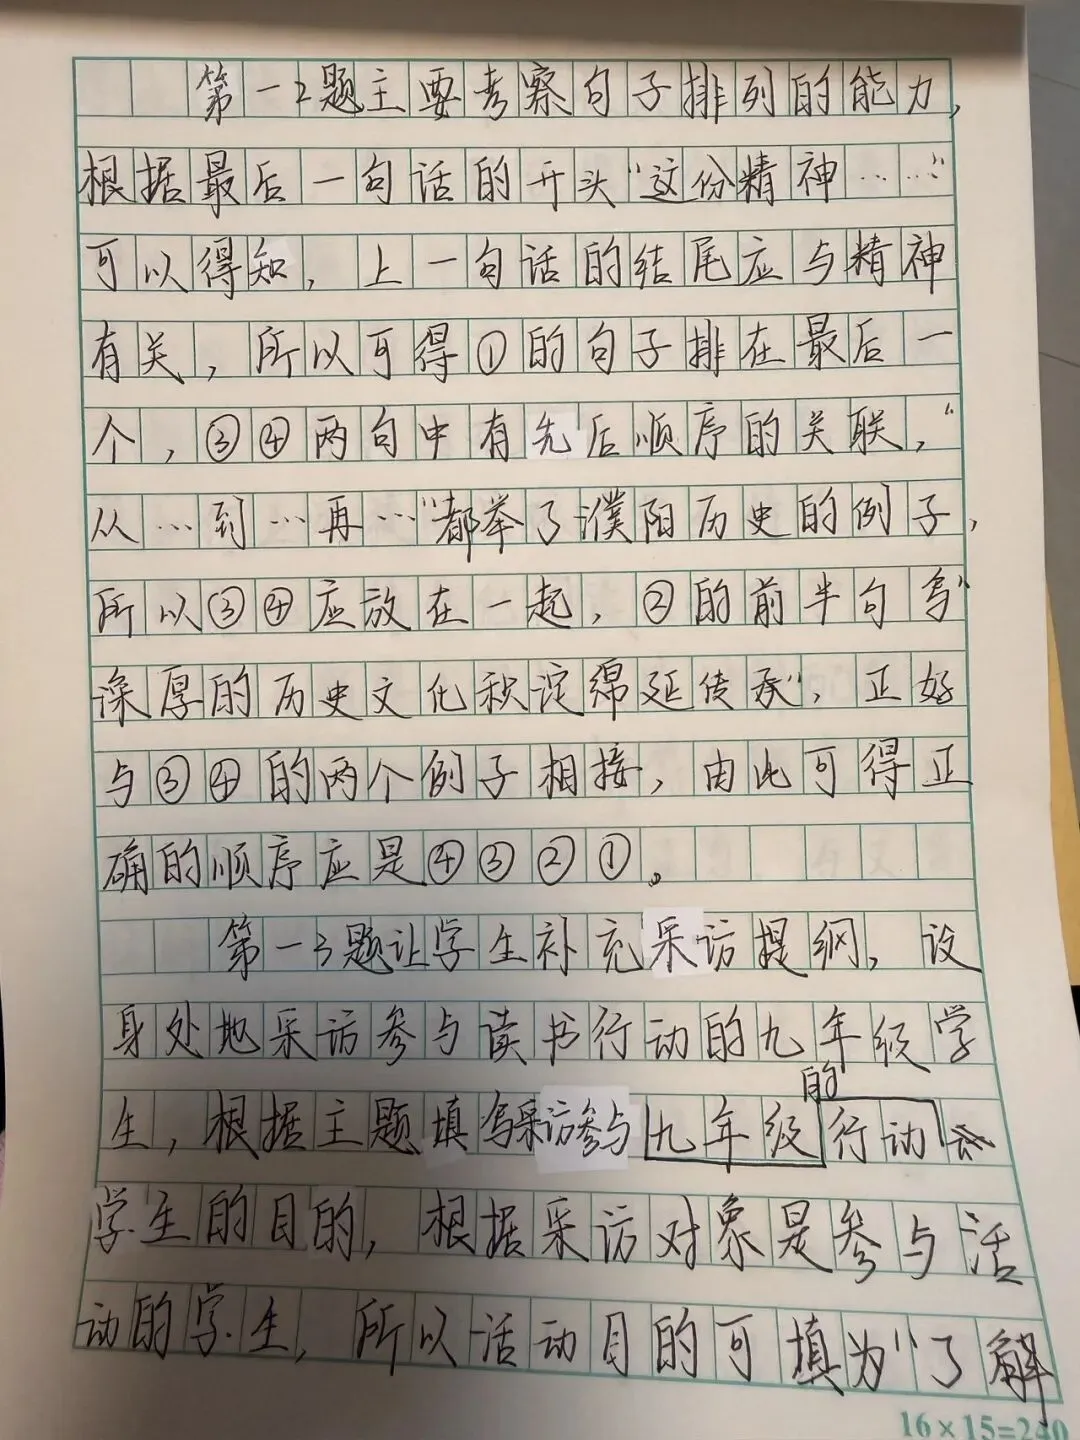 第一2题主要考察句子排列的能力,
根据最后一句话的开头“这份精神……”
可以得知,上一句话的结尾应与精神
有关,所以可得①的句子排在最后一
个,③④两句中有先后顺序的关联,“
从…到…再…”都举了濮阳历史的例子,
所以③④应放在一起,②的前半句写“
深厚的历史文化积淀绵延传承”,正好
与③④的两个例子相接,由此可得正
确的顺序应是④③②①。
第一3题让学生补充采访提纲,设
身处地采访参与读书行动的九年级学
的
生,根据主题填写采访参与九年级行动
学生的目的,根据采访对象是参与活
动的学生,所以活动目的可填为“了解
16×15=240